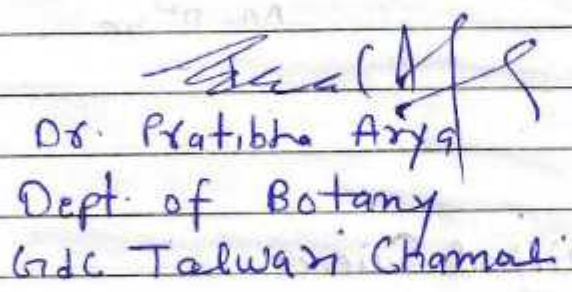 Dr. Pratibha Arya
Dept. of Botany
Gdc Talwari Chamoli